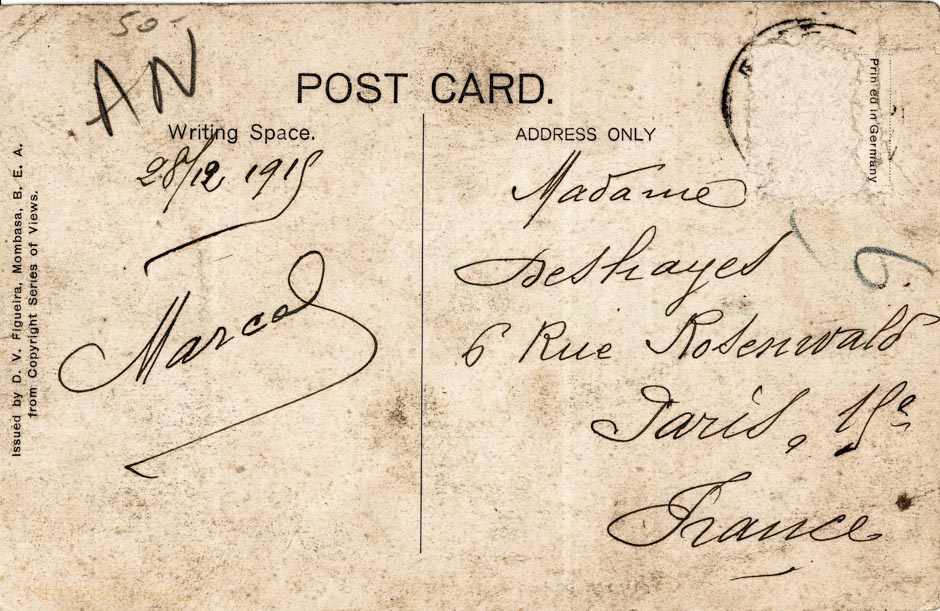 50-
AN
POST CARD.
Writing Space.
28/12 1915
Marcel
Issued by D. V. Figueira, Mombasa, B. E. A.
from Copyright Series of Views.
ADDRESS ONLY
Printed in Germany
Madame
Deshayes
6 Rue Rosenwald
Paris, 15e
France